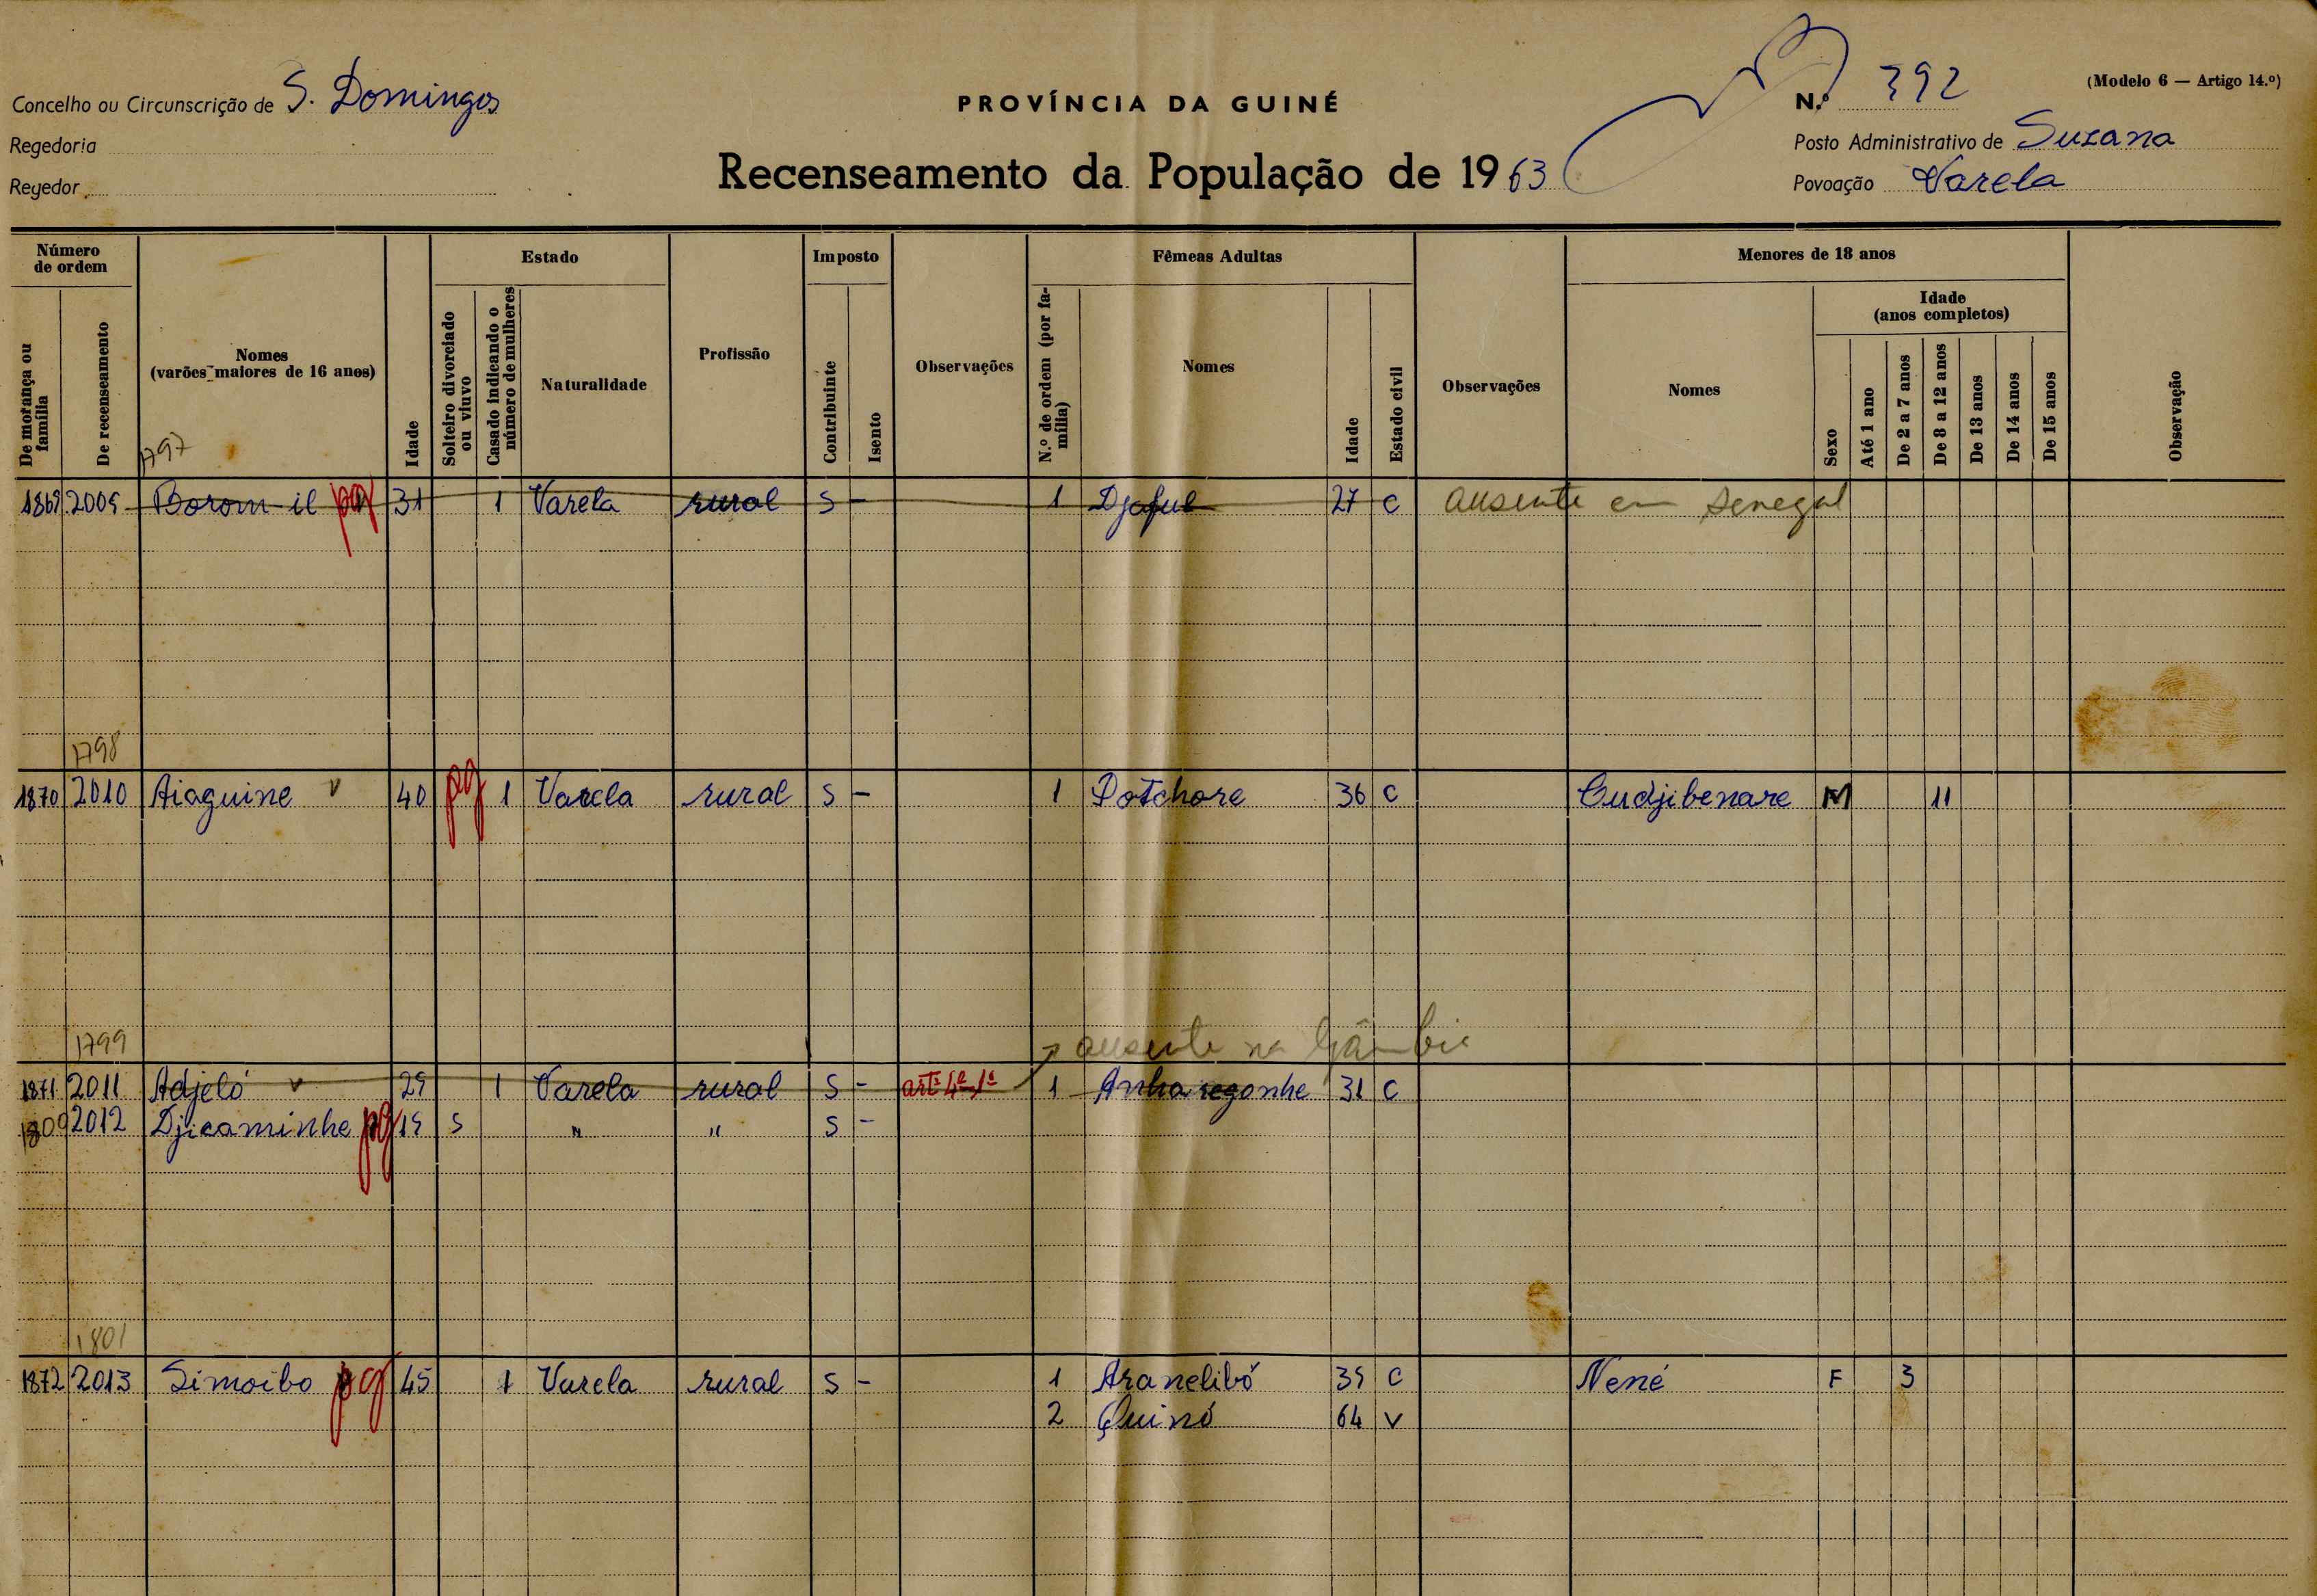 Concelho ou Circunscrição de S. Domingos
Regedoria
Regedor
PROVÍNCIA DA GUINÉ
Recenseamento da População de 1963
(Modelo 6 — Artigo 14.º)
N.º 392
Posto Administrativo de Suzana
Povoação Varela
Número de ordem
De morança ou família
De recenseamento
Nomes
(varões maiores de 16 anos)
Idade
Estado
Solteiro divorciado ou viuvo
Casado indicando o número de mulheres
Naturalidade
Profissão
Imposto
Contribuinte
Isento
Observações
Fêmeas Adultas
N.º de ordem (por família)
Nomes
Idade
Estado civil
Observações
Menores de 18 anos
Nomes
Idade
(anos completos)
Sexo
Até 1 ano
De 2 a 7 anos
De 8 a 12 anos
De 13 anos
De 14 anos
De 15 anos
Observação
1797
1869 2009 Borom-il pg 31 1 Varela rural S - 1 Djaful 27 C ausente em Senegal
1798
1870 2010 Aiaguine v 40 pg 1 Varela rural S - 1 Potchore 36 C Cudjibenare M 11
1799
ausente na Gâmbia
1871 2011 Adjeló v 29 1 Varela rural S - 1 Anharegonhe 31 C
2012 Djicaminhe pg 19 S " " S -
1801
1872 2013 Simoibo pg 45 1 Varela rural S - 1 Aranelibó 39 C Nené F 3
2 Quinó 64 V